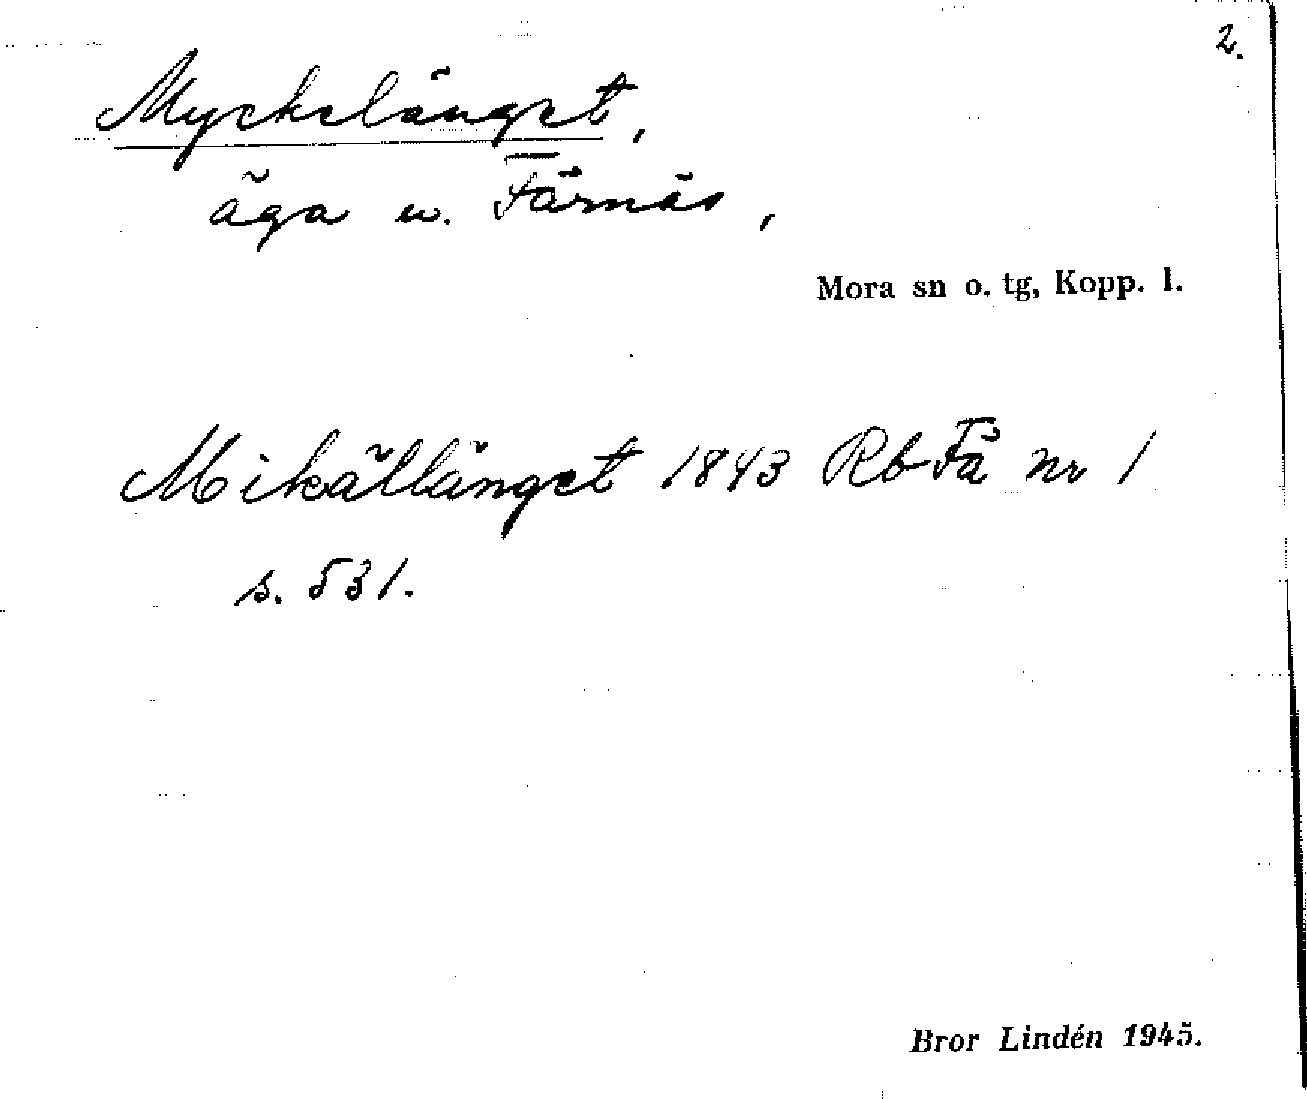 2.
Myckelänget,
äga u. Färnäs,
Mora sn o. tg, Kopp. l.
Mikällänget 1843 Rb Fä nr 1
s. 531.
Bror Lindén 1945.